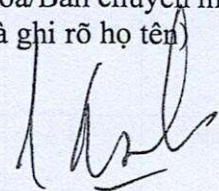 oa/Ban chuyên m
à ghi rõ họ tên)